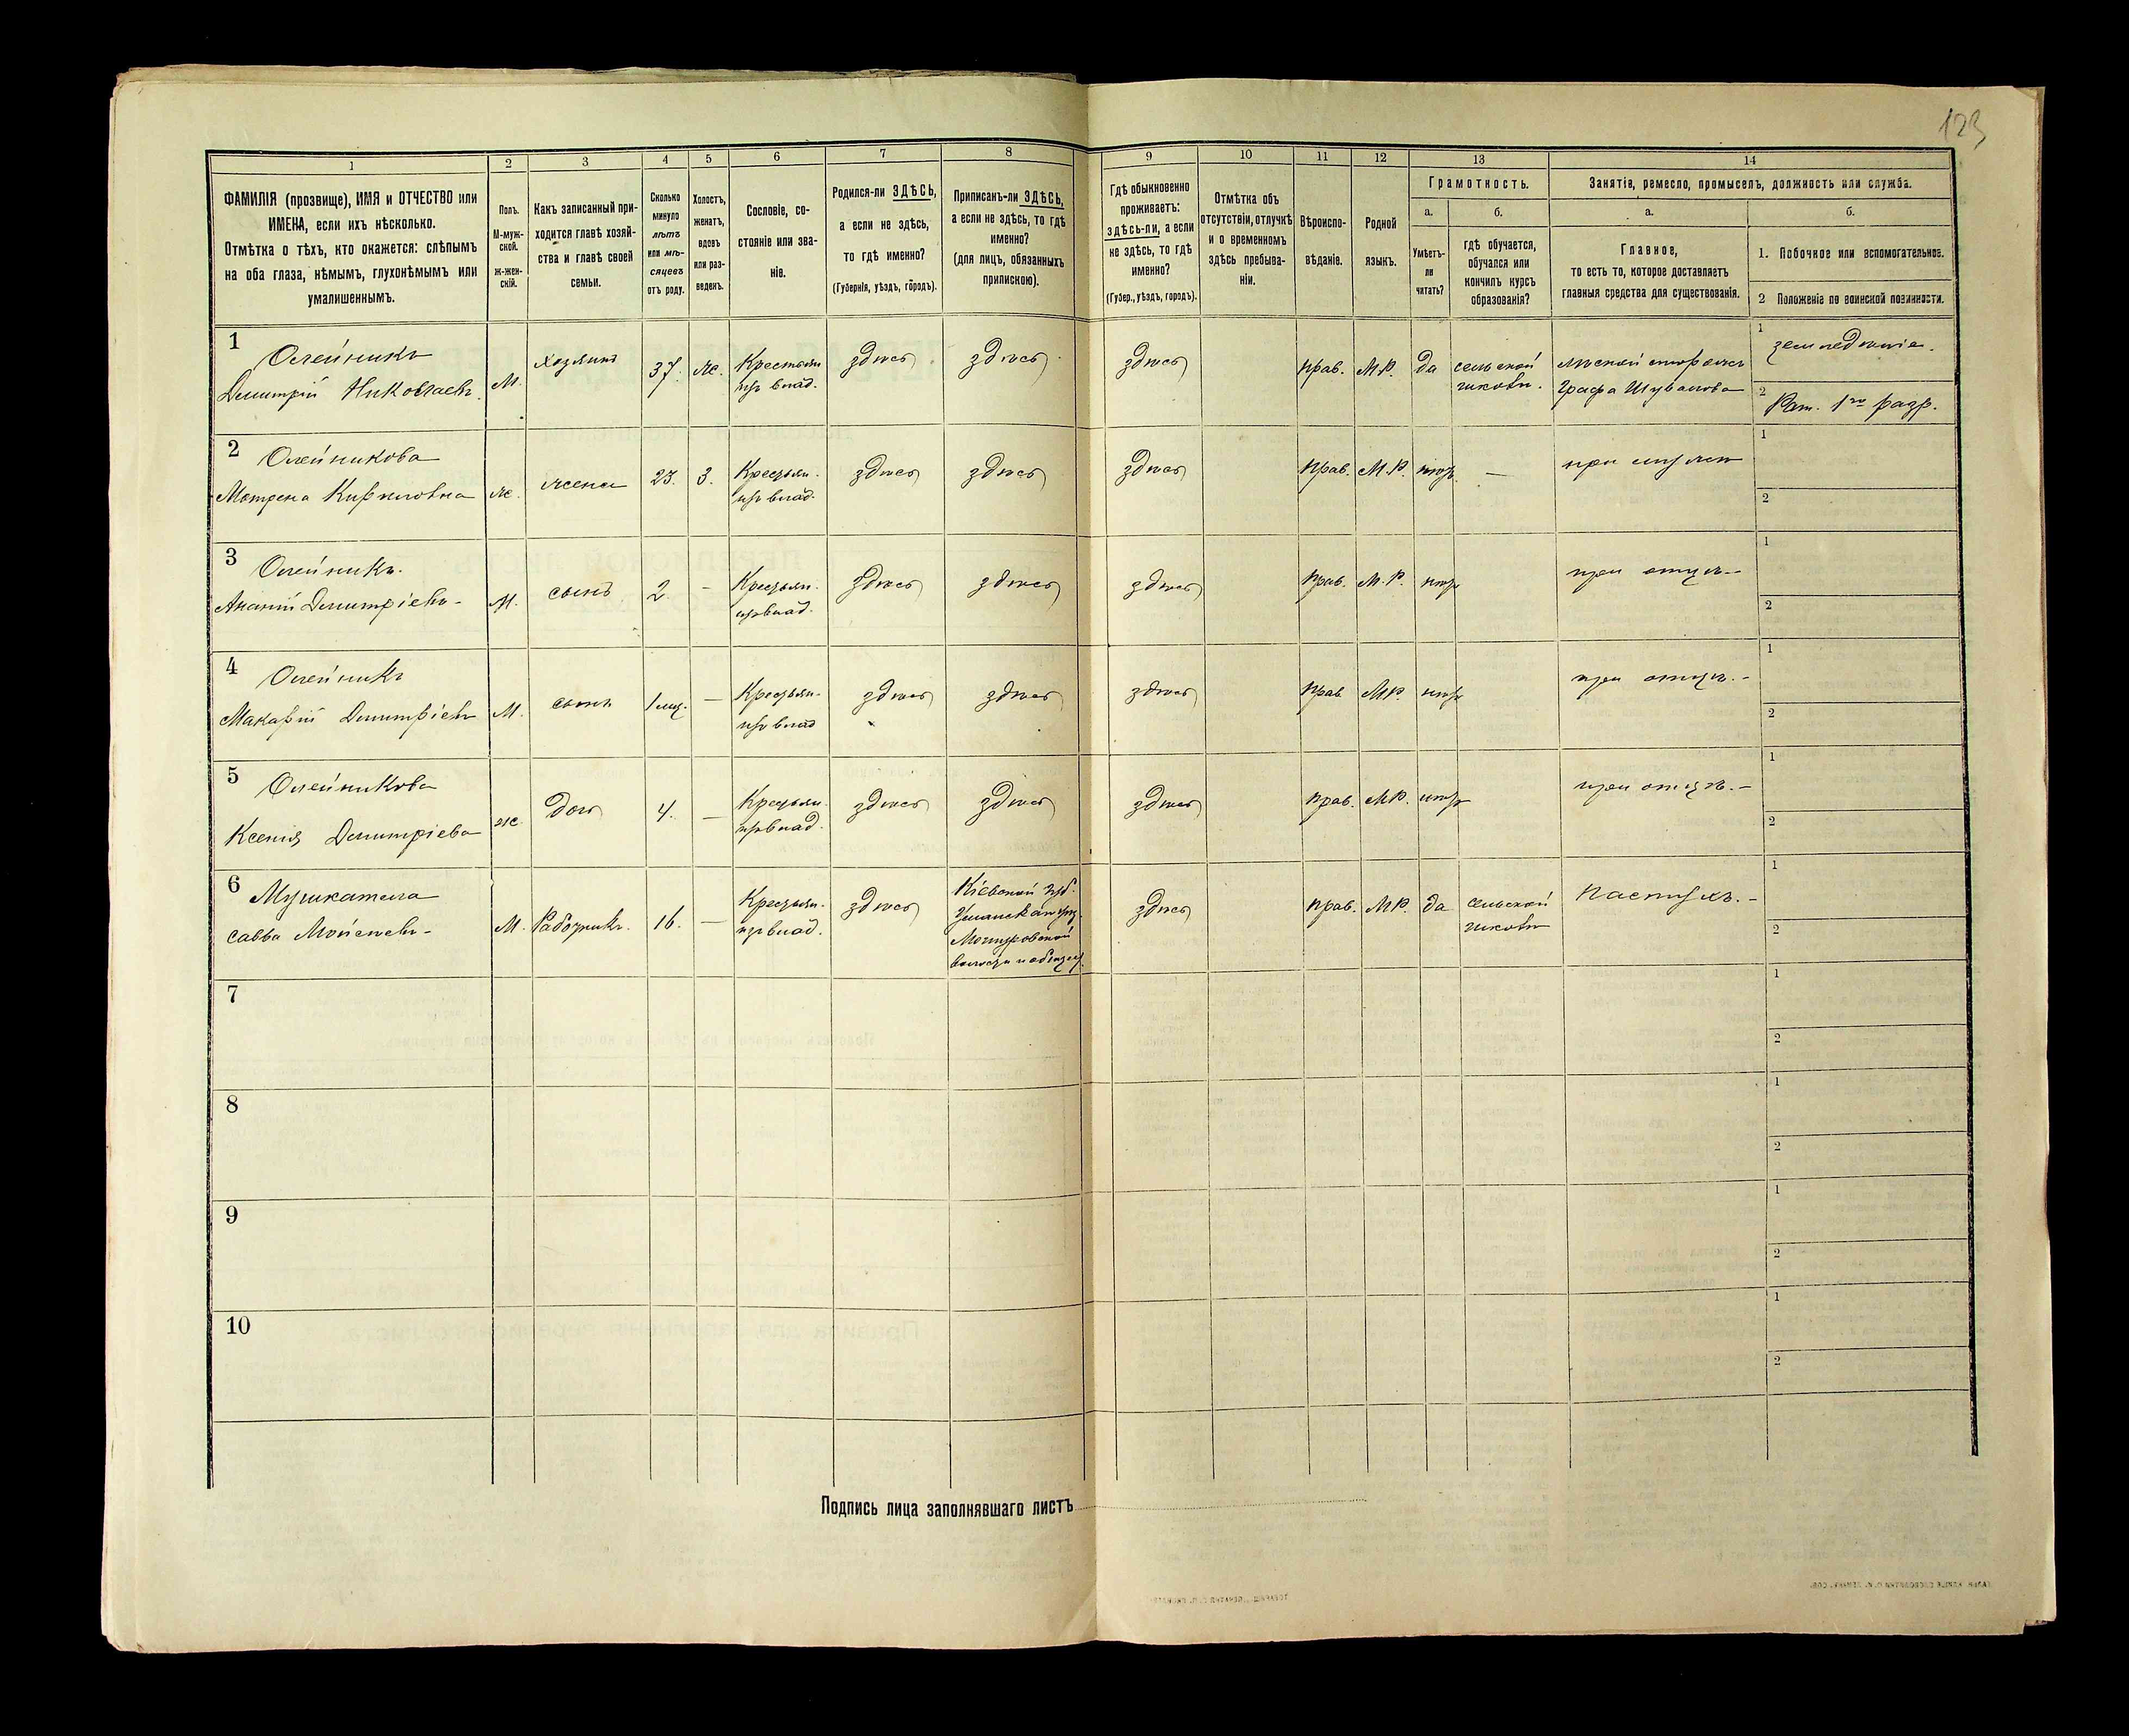 123
1 2 3 4 5 6 7 8 9 10 11 12 13 14
ФАМИЛІЯ (прозвище), ИМЯ и ОТЧЕСТВО или
ИМЕНА, если ихъ нѣсколько.
Отмѣтка о тѣхъ, кто окажется: слѣпымъ
на оба глаза, нѣмымъ, глухонѣмымъ или
умалишеннымъ.
Полъ.
М-муж-
ской.
ж-жен-
скій.
Какъ записанный при-
ходится главѣ хозяй-
ства и главѣ своей
семьи.
Сколько
минуло
лѣтъ
или мѣ-
сяцевъ
отъ роду.
Холостъ,
женатъ,
вдовъ
или раз-
веденъ.
Сословіе, со-
стояніе или зва-
ніе.
Родился-ли ЗДѢСЬ,
а если не здѣсь,
то гдѣ именно?
(Губернія, уѣздъ, городъ).
Приписанъ-ли ЗДѢСЬ,
а если не здѣсь, то гдѣ
именно?
(для лицъ, обязанныхъ
припискою).
Гдѣ обыкновенно
проживаетъ:
здѣсь-ли, а если
не здѣсь, то гдѣ
именно?
(Губер., уѣздъ, городъ).
Отмѣтка объ
отсутствіи, отлучкѣ
и о временномъ
здѣсь пребыва-
ніи.
Вѣроиспо-
вѣданіе.
Родной
языкъ.
Грамотность.
а.
Умѣетъ-
ли
читать?
б.
гдѣ обучается,
обучался или
кончилъ курсъ
образованія?
Занятія, ремесло, промыселъ, должность или служба.
а.
Главное,
то есть то, которое доставляетъ
главныя средства для существованія.
б.
1. Побочное или вспомогательное.
2 Положеніе по воинской повинности.
1
Олейникъ
Димитрій Николаевъ
М.
хозяинъ
37.
же.
Крестьян
изъ влад.
здѣсь
здѣсь
здѣсь
прав.
М.Р.
да
сельской
школѣ.
лѣсной сторожъ
Графа Шувалова
1
земледѣліе.
2
Рат. 1го разр.
2
Олейникова
Мотрена Кириловна
же.
жена
23.
З.
Крестьян.
изъ влад.
здѣсь
здѣсь
здѣсь
прав.
М.Р.
нѣтъ
—
при мужѣ
1
2
3
Олейникъ.
Ананій Димитріевъ
М.
сынъ
2.
—
Крестьян.
изъ влад.
здѣсь
здѣсь
здѣсь
прав.
М.Р.
нѣтъ
при отцѣ.-
1
2
4
Олейникъ
Макарій Димитріевъ
М.
сынъ
1 мц.
—
Крестьян.
изъ влад
здѣсь
здѣсь
здѣсь
прав
МР.
нѣтъ
при отцѣ.-
1
2
5
Олейникова
Ксенія Димитріева
же.
дочь
4.
—
Крестьян.
изъ влад.
здѣсь
здѣсь
здѣсь
прав.
МР.
нѣтъ
при отцѣ.-
1
2
6
Мушкатела
Савва Мойсеевъ
М.
Работникъ.
16.
—
Крестьян.
изъ влад.
здѣсь
Кіевской губ.
Уманскаго уѣз.
волости
здѣсь
прав.
МР.
да
сельской
школѣ
пастухъ.-
1
2
7
1
2
8
1
2
9
1
2
10
1
2
Подпись лица заполнявшаго листъ